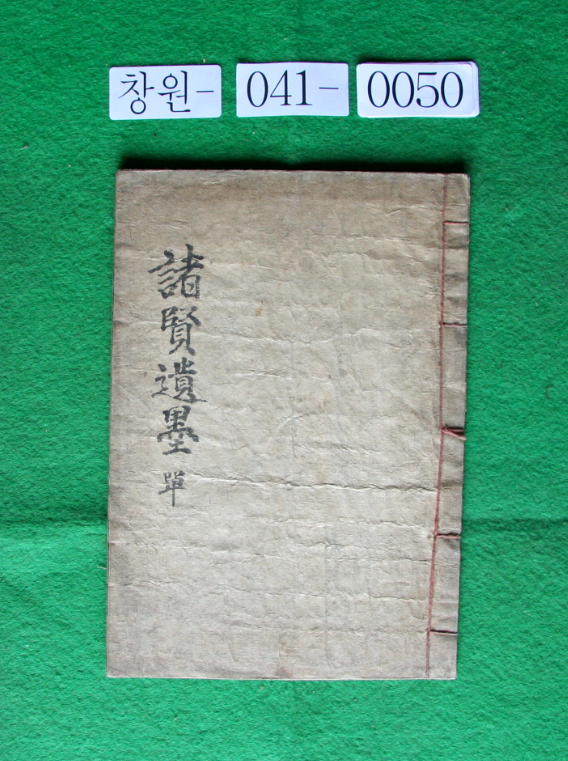 창원-041-0050
諸賢遺墨 單